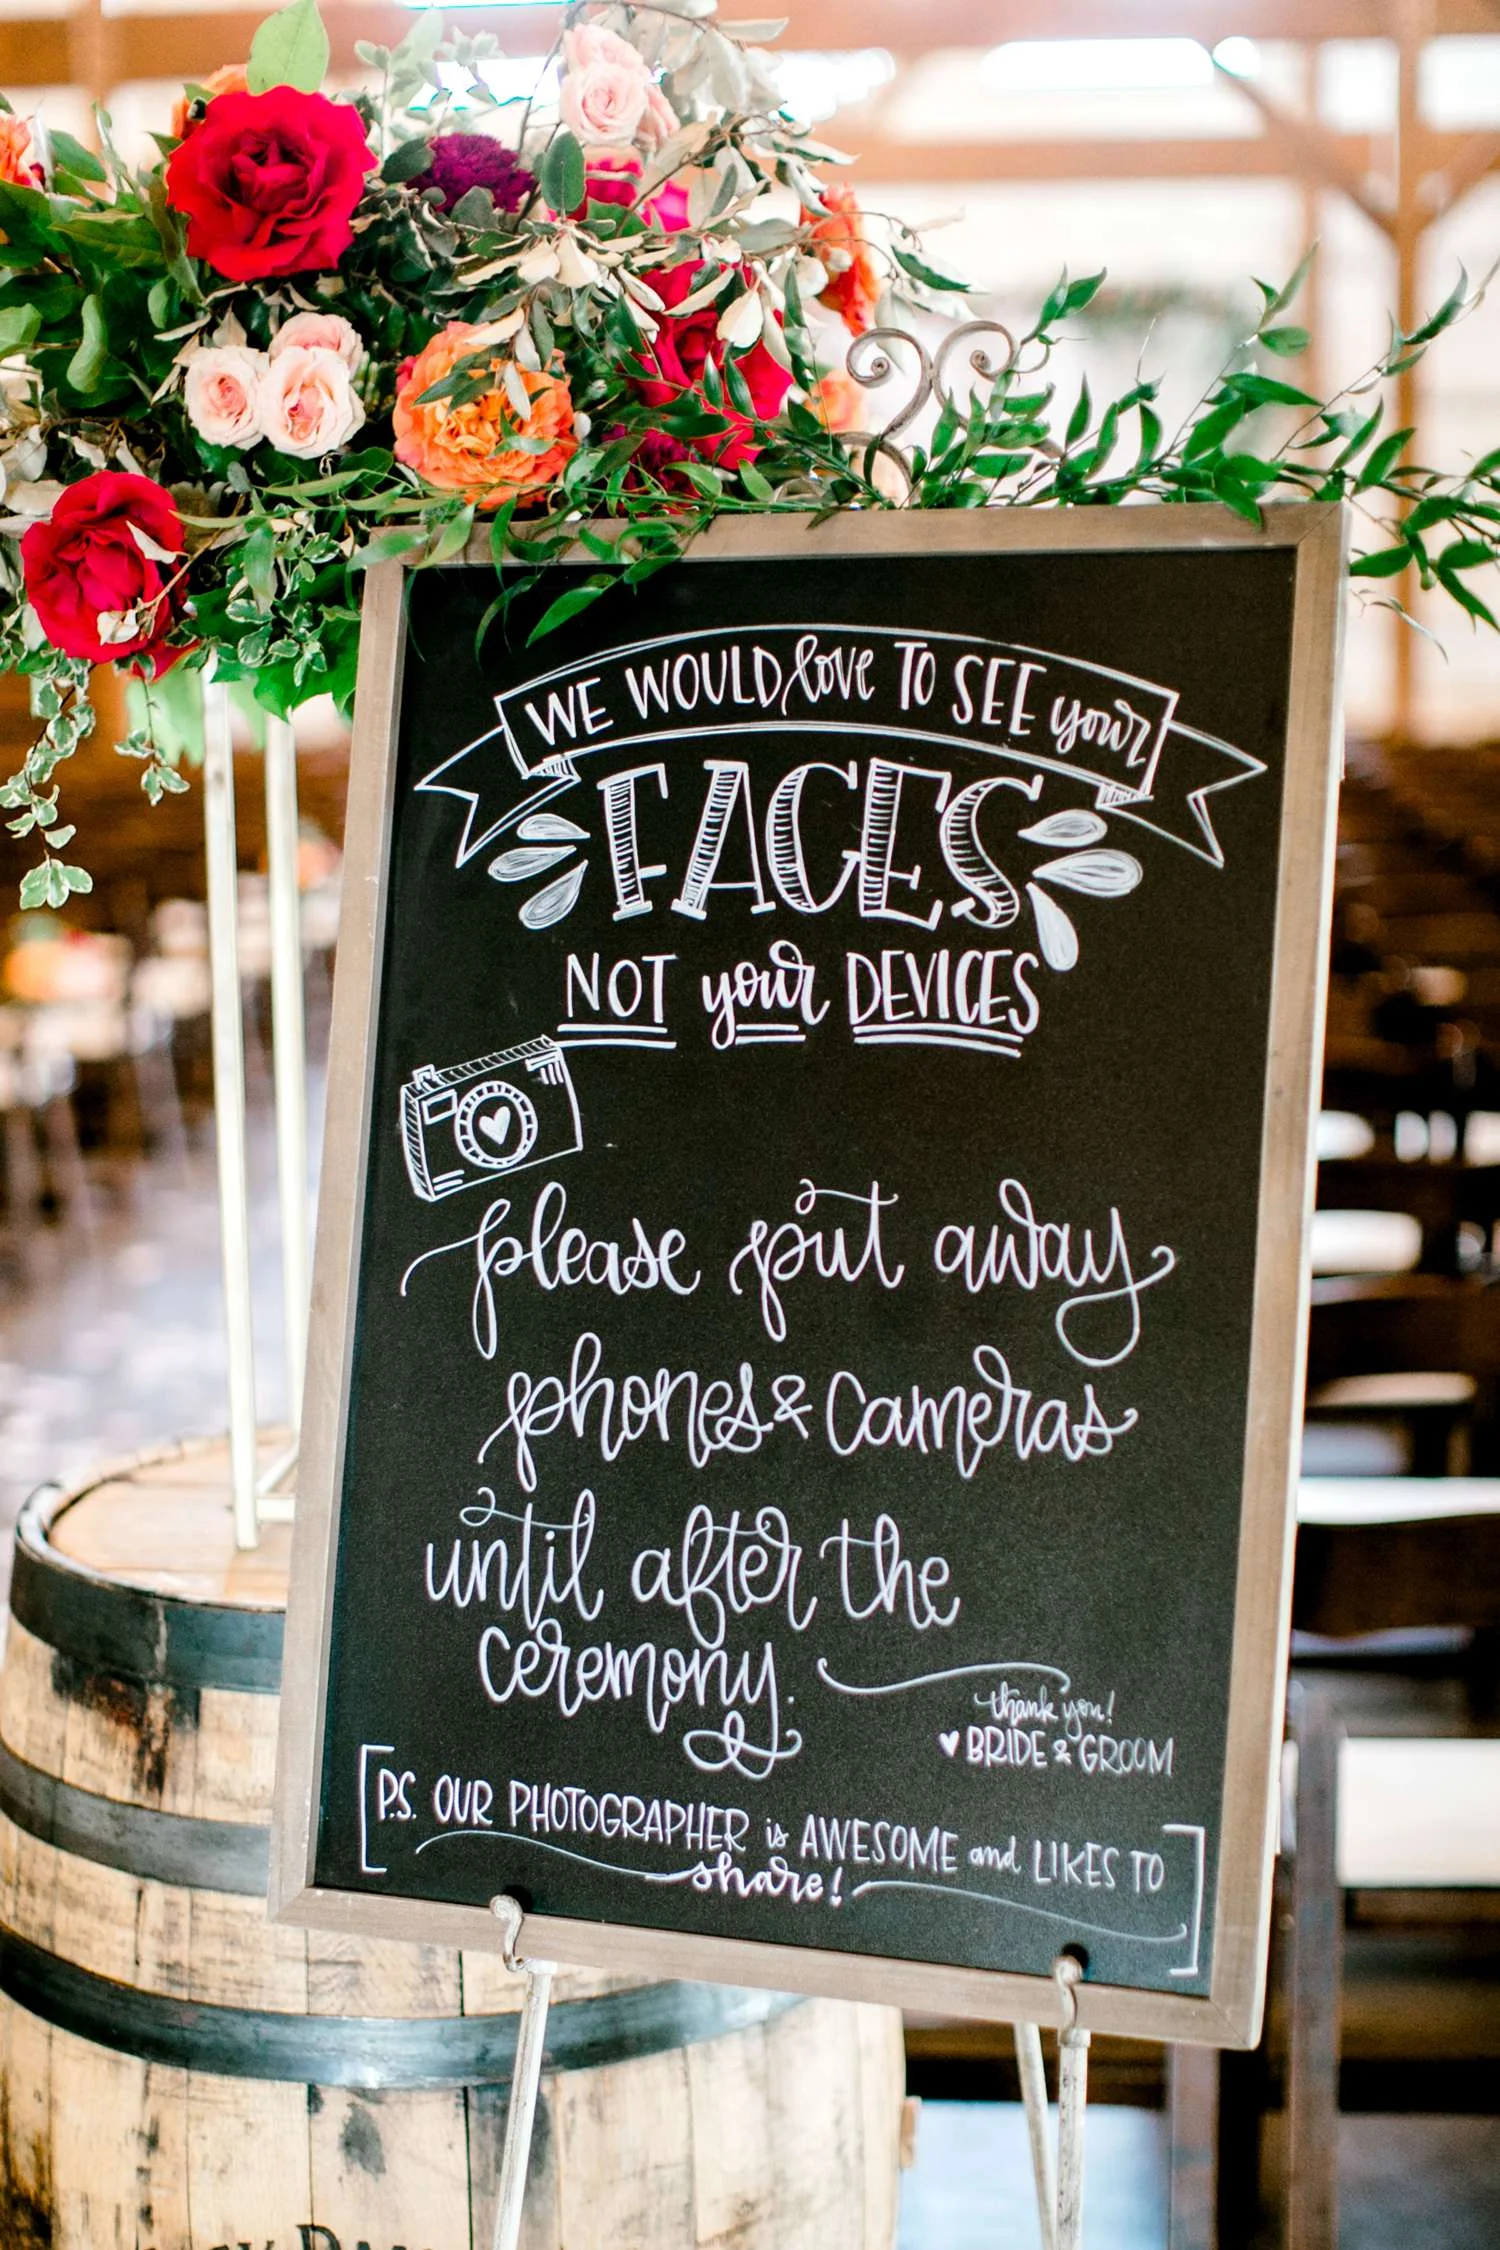 WE WOULD love TO SEE your
FACES
NOT your DEVICES
please put away
phones & cameras
until after the
ceremony.
thank you!
BRIDE & GROOM
P.S. OUR PHOTOGRAPHER is AWESOME and LIKES TO
share!